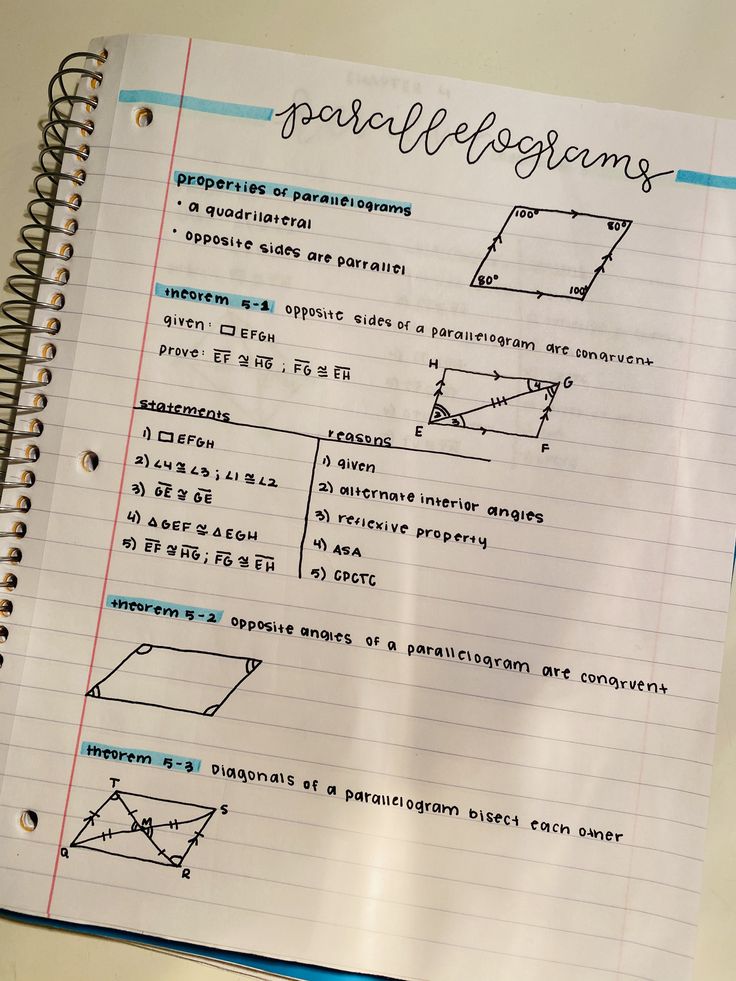 parallelograms
properties of parallelograms
• a quadrilateral
• opposite sides are parrallel
100° 80°
80° 100°
theorem 5-1 opposite sides of a parallelogram are congruent
given: ▭ EFGH
prove: E̅F̅ ≅ H̅G̅ ; F̅G̅ ≅ E̅H̅
H 4 G
1
2 3
E F
statements reasons
1) ▭ EFGH 1) given
2) ∠4 ≅ ∠3 ; ∠1 ≅ ∠2 2) alternate interior angles
3) G̅E̅ ≅ G̅E̅ 3) reflexive property
4) △GEF ≅ △EGH 4) ASA
5) E̅F̅ ≅ H̅G̅ ; F̅G̅ ≅ E̅H̅ 5) CPCTC
theorem 5-2 opposite angles of a parallelogram are congruent
theorem 5-3 Diagonals of a parallelogram bisect each other
T S
M
Q R